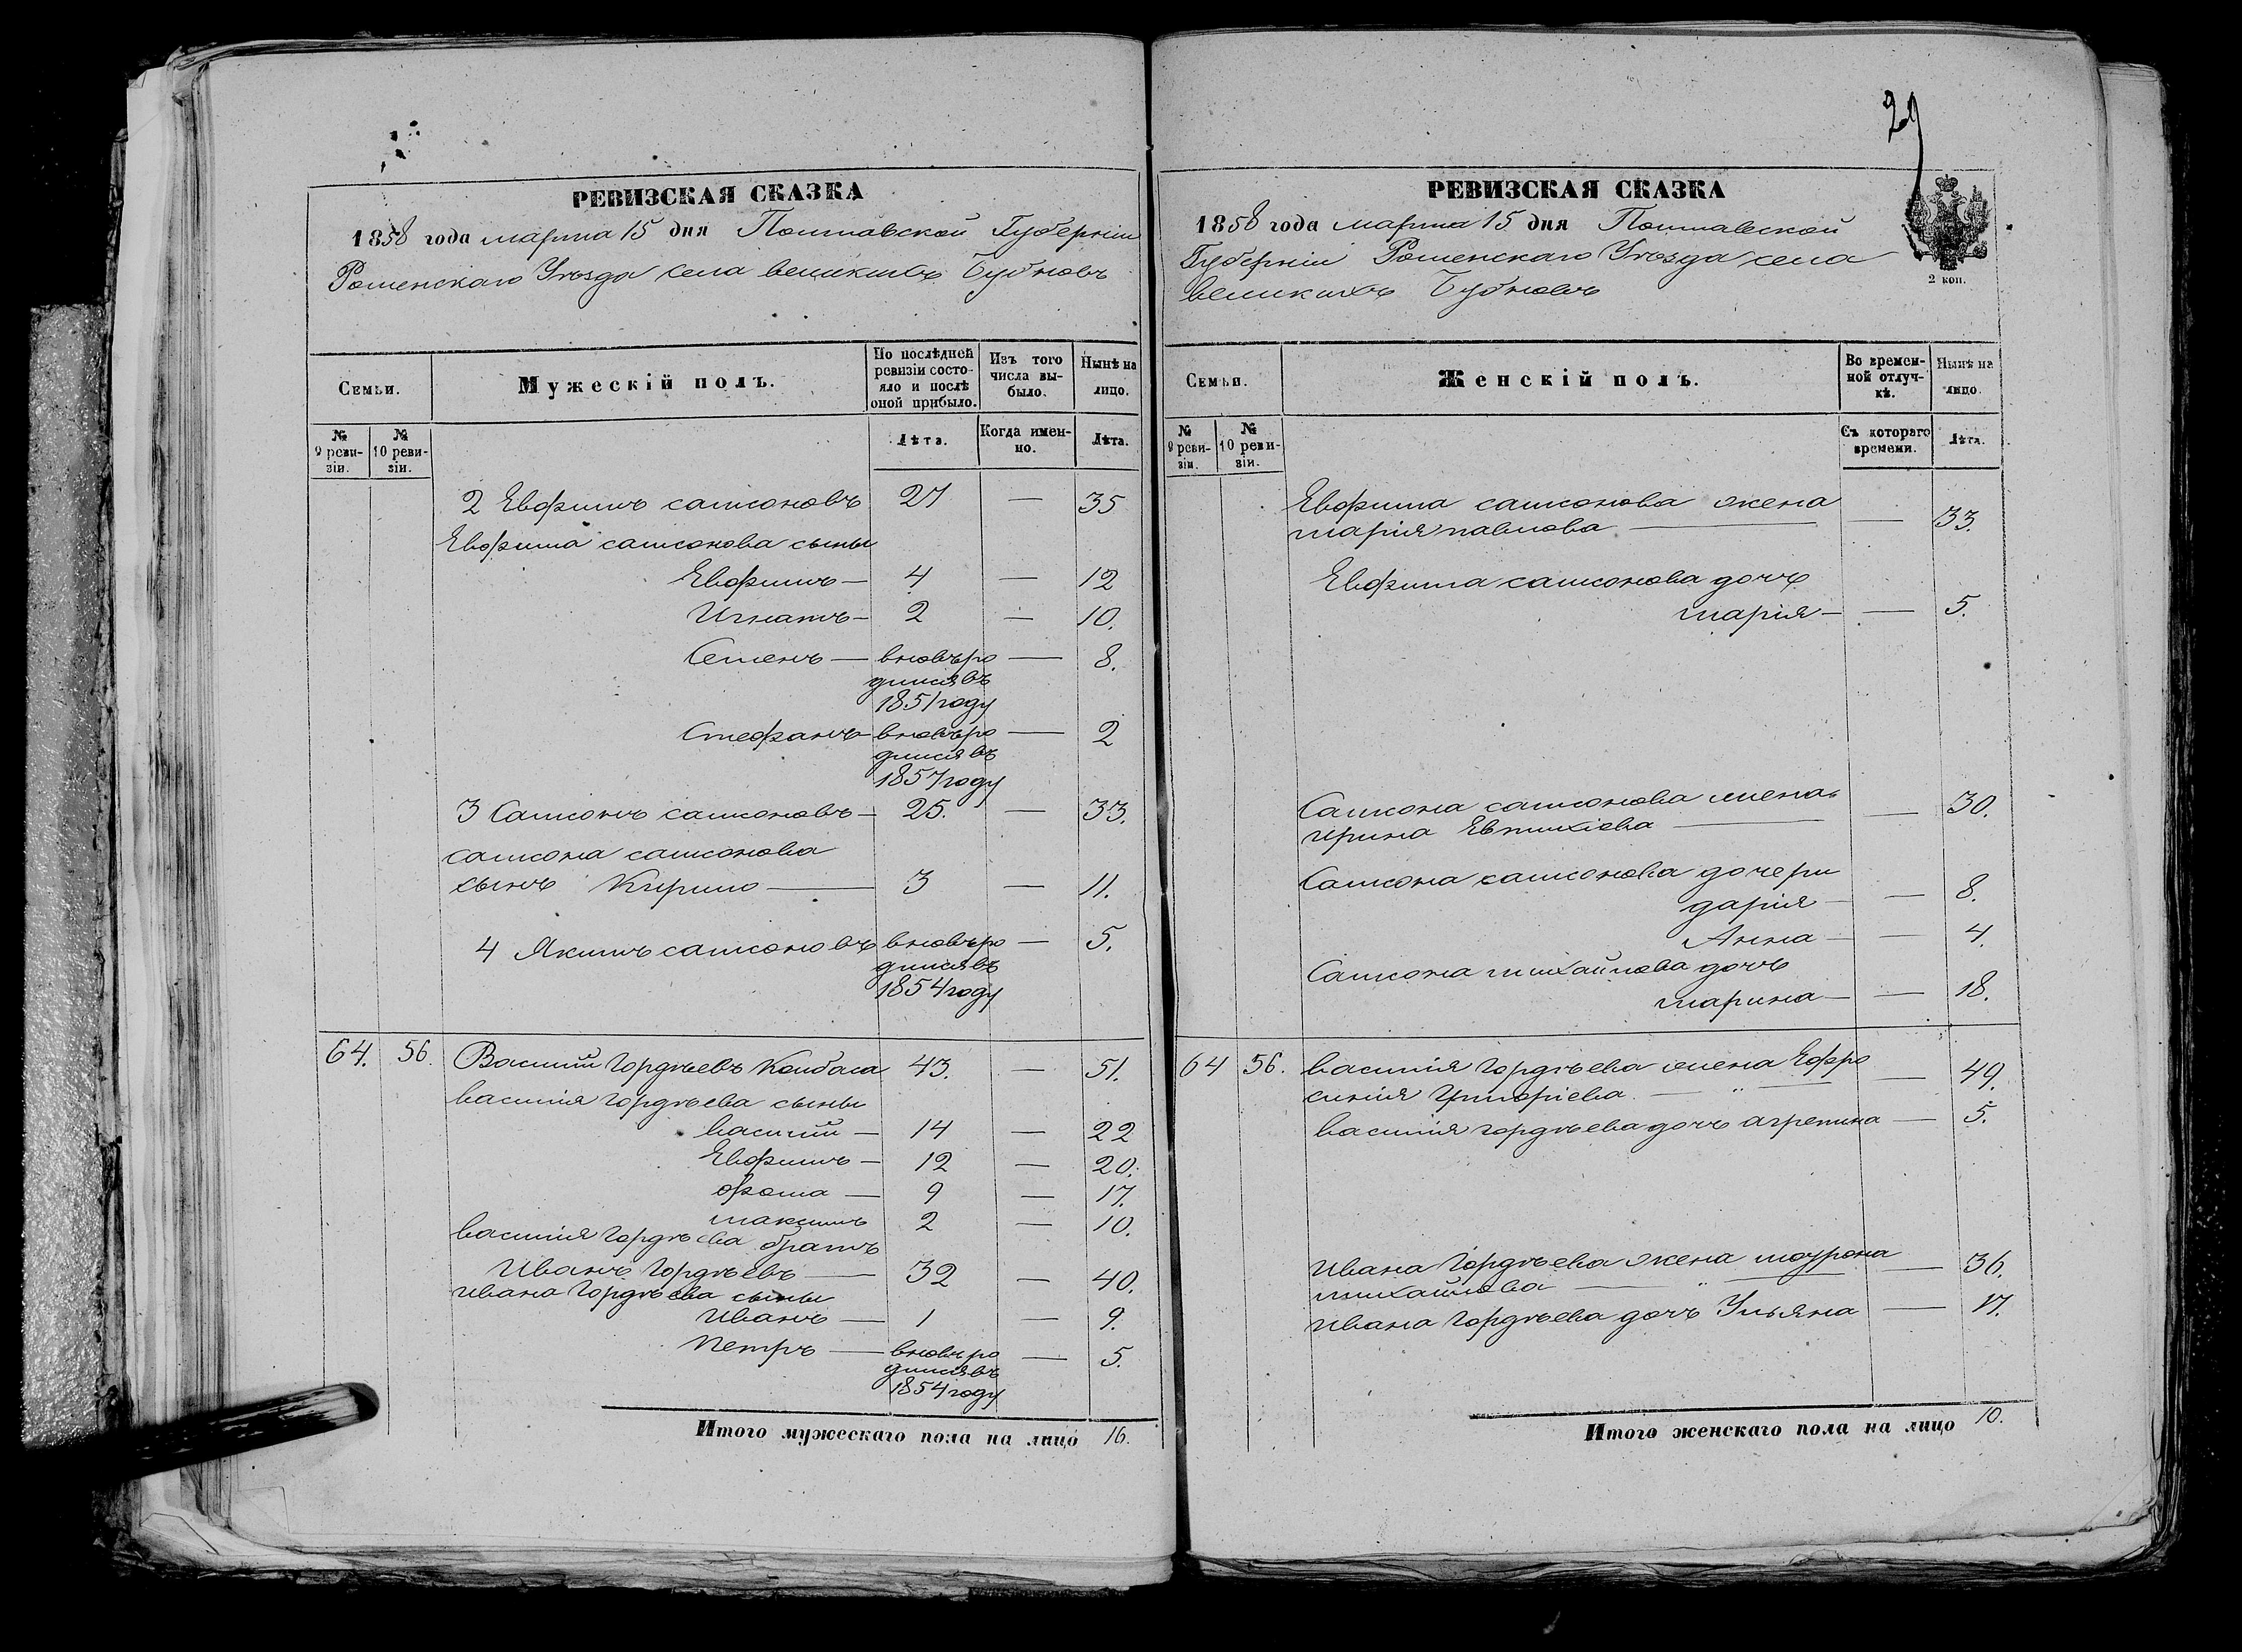 РЕВИЗСКАЯ СКАЗКА
1858 года марта 15 дня Полтавской Губерніи
Роменскаго Уѣзда села великихъ Бубновъ
Семьи.
Мужескій полъ.
По послѣдней ревизіи состояло и послѣ оной прибыло.
Изъ того числа выбыло.
Нынѣ на лицо.
№ 9 ревизіи.
№ 10 ревизіи.
Лѣта.
Когда именно.
Лѣта.
2 Евфимъ самсоновъ 27 — 35
Евфима самсонова сыны
Евфимъ — 4 — 12
Игнатъ — 2 — 10.
Семенъ — вновьро — 8.
дилсявъ
1851 году
Стефанъ — вновьро — 2
дилсявъ
1857 году
3 Самсонъ самсоновъ — 25. — 33.
самсона самсонова
сынъ Кирило — 3 — 11.
4 Якимъ самсоновъ вновьро — 5.
дилсявъ
1854 году
64. 56. Василій Гордѣевъ Ковбаса 43. — 51.
василія гордѣева сыны
василій — 14 — 22
Евфимъ — 12 — 20.
фома — 9 — 17.
максимъ 2 — 10.
василія Гордѣева братъ
Иванъ Гордѣевъ — 32 — 40.
ивана Гордѣева сыны
Иванъ — 1 — 9.
Петръ — вновьро — 5.
дилсявъ
1854 году
Итого мужескаго пола на лицо 16.
29
РЕВИЗСКАЯ СКАЗКА
1858 года марта 15 дня Полтавской
Губерніи Роменскаго Уѣзда села
великихъ Бубновъ
2 коп.
Семьи.
Женскій полъ.
Во временной отлучкѣ.
Нынѣ на лицо.
№ 9 ревизіи.
№ 10 ревизіи.
Съ котораго времени.
Лѣта.
Евфима самсонова жена
марія павлова — — 33.
Евфима самсонова дочь
марія — — 5.
Самсона самсонова жена
ирина Евтихіева — — 30.
Самсона самсонова дочери
дарія — — 8.
Анна — — 4.
Самсона михайлова дочь
марина — — 18.
64 56. василія Гордѣева жена Ефро
синія Григоріева — „ — — 49.
василія гордѣева дочь агрепина — 5.
ивана Гордѣева жена мотрона
михайлова — „ — — 36.
ивана Гордѣева дочь Ульяна — 17.
Итого женскаго пола на лицо 10.